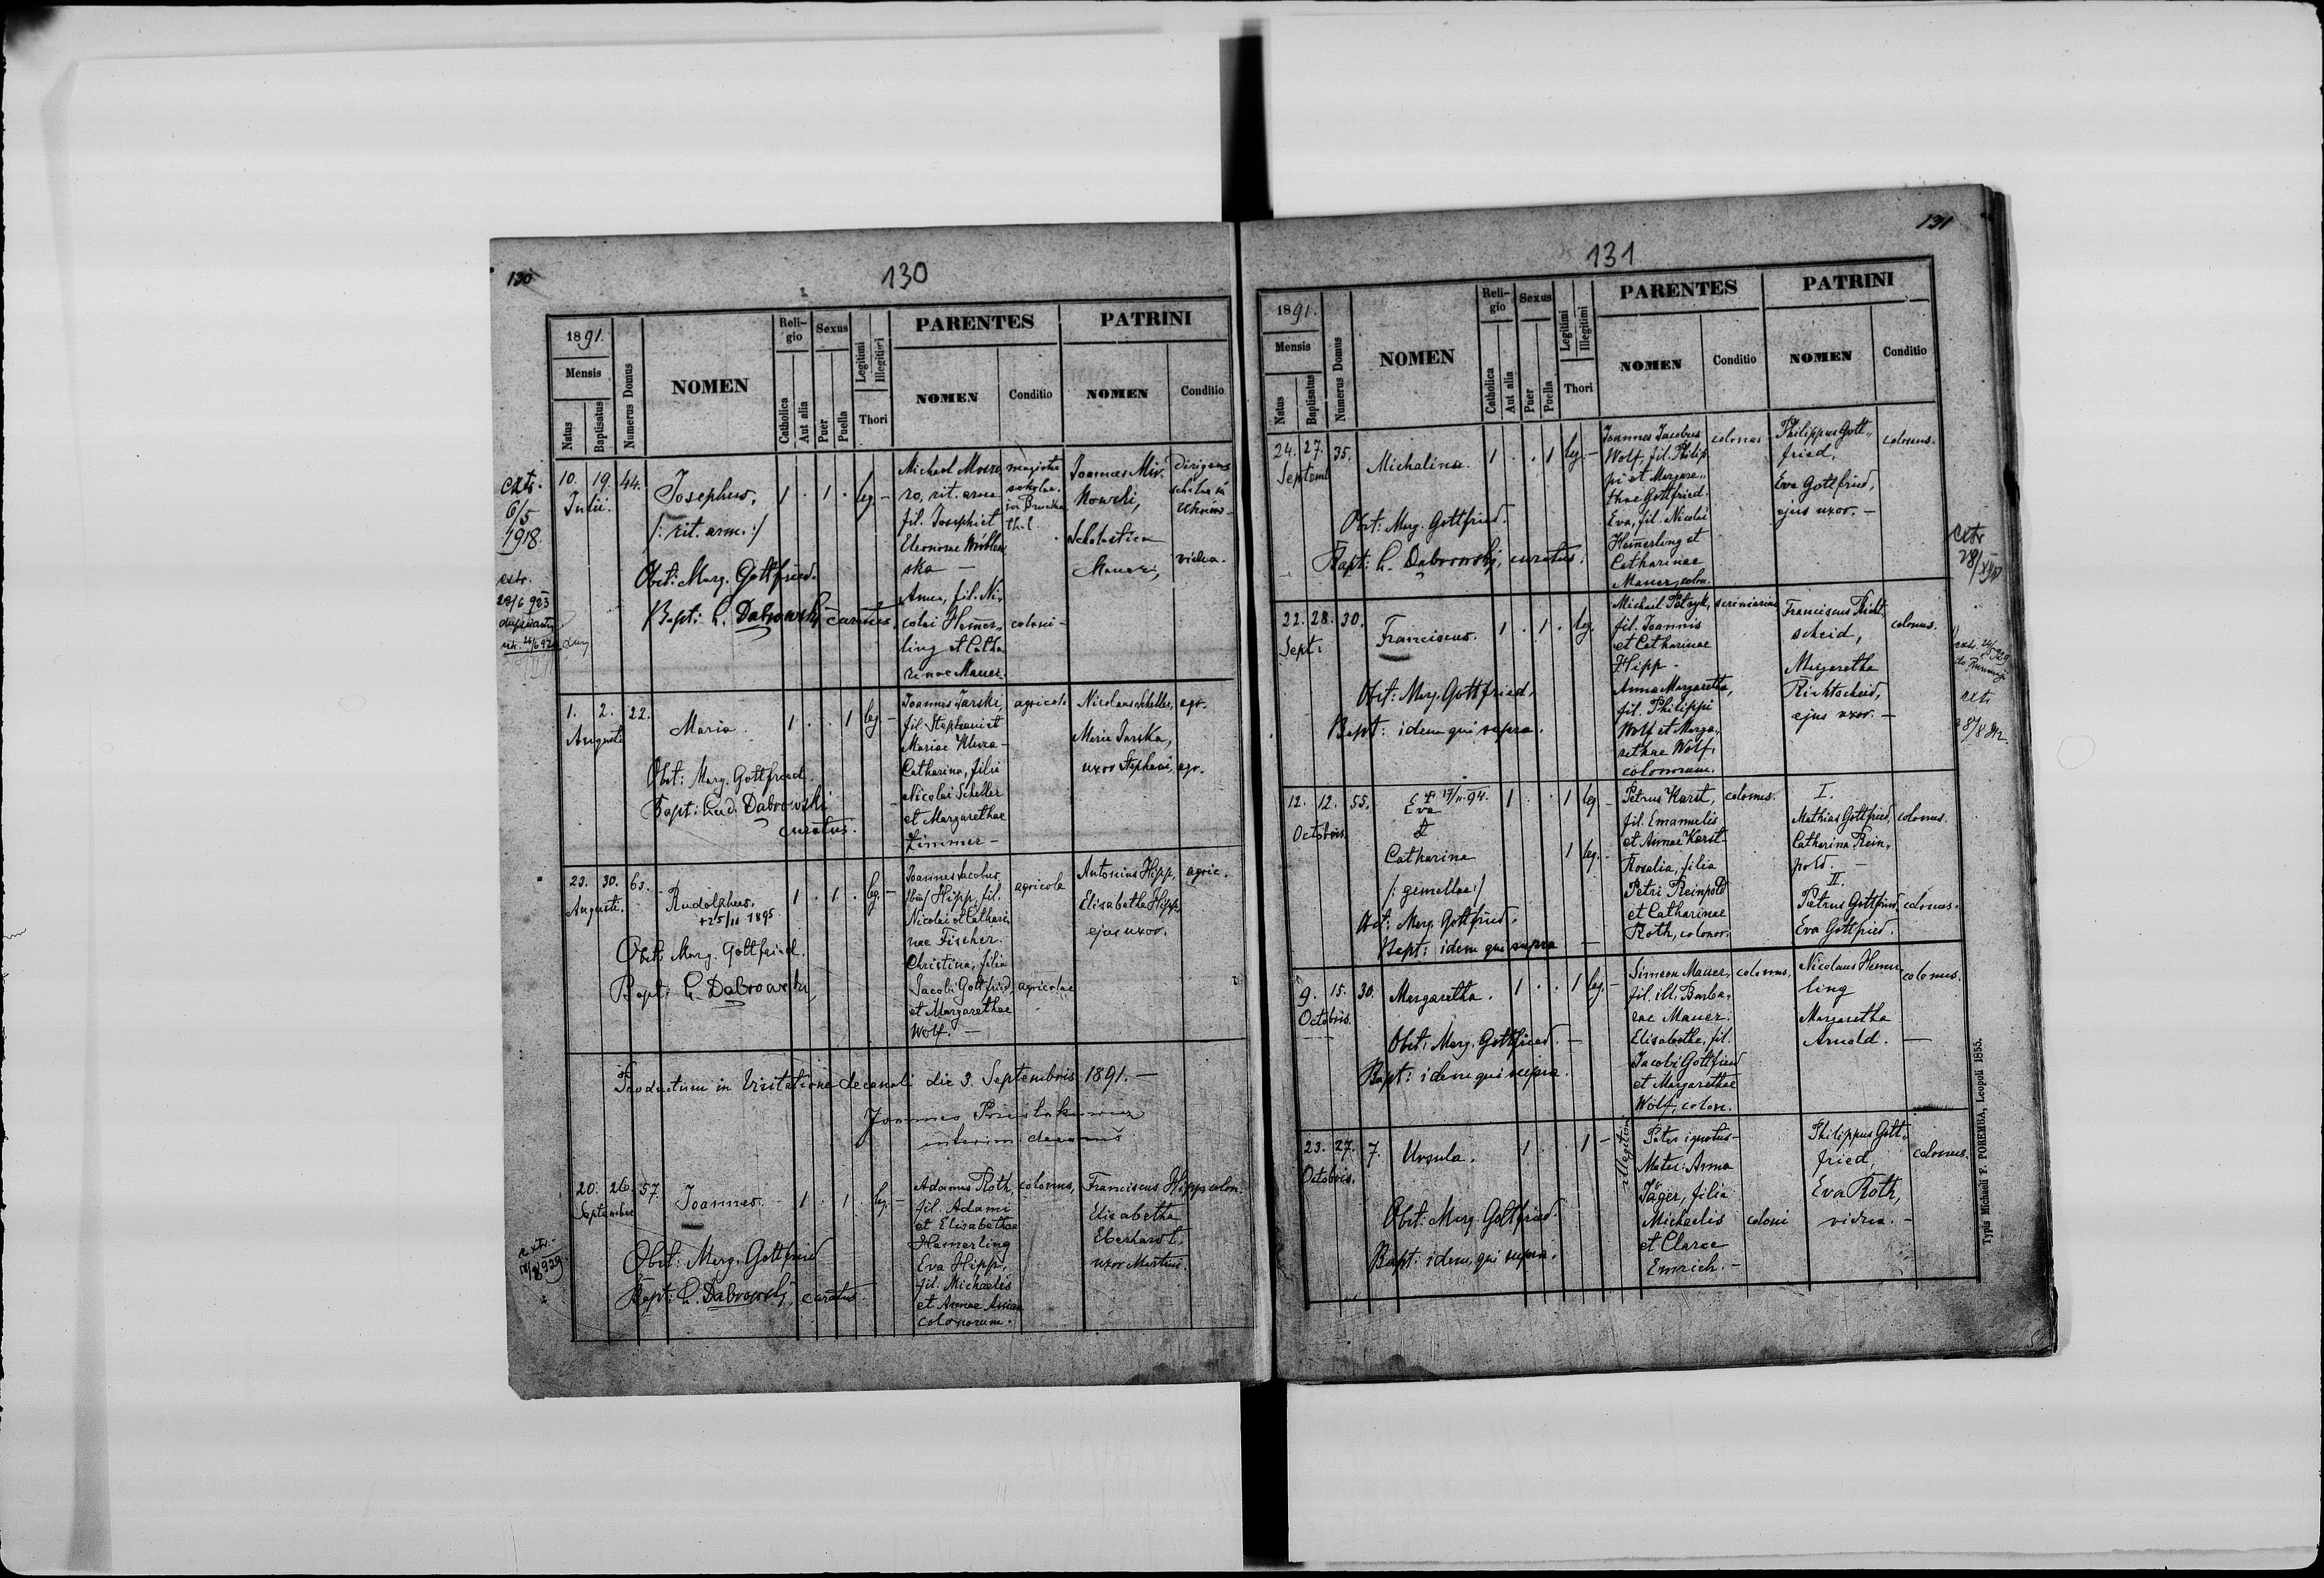 130
130
1891.
Mensis
Natus
Baptisatus
Numerus Domus
NOMEN
Reli-
gio
Catholica
Aut alia
Sexus
Puer
Puella
Legitimi
Illegitimi
Thori
PARENTES
NOMEN
Conditio
PATRINI
NOMEN
Conditio
extr.
6/5
1918
extr.
10. 19. 44.
Julii.
Josephus,
/: rit. arm. :/
Obst: Marg. Gottfried.
Bapt: L. Dabrowski curatus.
1 . 1 . leg -
Michael
rit. arme
fil. Josephi et
Eleonorae
ska —
Anna, fil. Ni-
colai Hemer-
ling et Catha
rinae Mauer.
magister
coloni -
Joannes
nowski,
Scholastica
Mauer,
Dirigens
vidua.
1. 2. 22.
Augusti
Maria.
Obst: Marg. Gottfried.
Bapt: Lud. Dabrowski
curatus.
1 . . 1 leg -
Joannes Jarski,
fil. Stephani et
Mariae
Catharina, filia
Nicolai Scheller
et Margarethae
Zimmer -
agricola
Nicolaus Scheller,
Maria Jarska,
uxor Stephani,
agr.
agr.
23. 30. 63.
Augusti.
Rudolphus.
+25/11 1895
Obst: Marg. Gottfried.
Bapt: L. Dabrowski,
1 . 1 . leg. -
Joannes Jacobus
Hipp, fil.
Nicolai et Cathari
nae Fischer.
Christina, filia
Jacobi Gottfried,
et Margarethae
Wolf. —
agricola
agricolae
Antonius Hipp,
Elisabetha Hipp,
ejus uxor.
agric.
Productum in Visitatione decanali die 3. Septembris 1891. —
Joannes
interim decanus
extr.
20. 26. 57.
Septembris
Joannes.
Obst: Marg. Gottfried
Bapt: L. Dabrowski, curatus.
1 . 1 . leg. -
Adamus Roth,
fil. Adami
et Elisabethae
Hemerling
Eva Hipp,
fil. Michaelis
et Annae
colonorum.
colonus,
Franciscus Hipp colon.
Elisabetha
Eberhardt,
uxor Martini.
131
131
1891.
Mensis
Natus
Baptisatus
Numerus Domus
NOMEN
Reli-
gio
Catholica
Aut alia
Sexus
Puer
Puella
Legitimi
Illegitimi
Thori
PARENTES
NOMEN
Conditio
PATRINI
NOMEN
Conditio
24. 27. 35.
Septemb
Michalina.
Obst: Marg. Gottfried.
Bapt: L. Dabrowski, curatus.
1 . . 1 leg. -
Joannes Jacobus
Wolf, fil. Philip
pi et Margare„
thae Gottfried.
Eva, fil. Nicolai
Hemerling et
Catharinae
Mauer, colon.
colonus
Philippus Gott„
fried,
Eva Gottfried,
ejus uxor. —
colonus.
extr
22. 28. 30.
Sept.
Franciscus.
Obst: Marg. Gottfried.
Bapt: idem qui supra.
1 . 1 . leg.
Michael Petryk,
fil. Joannis
et Catharinae
Hipp -
Anna Margaretha,
fil. Philippi
Wolf et Marga„
rethae Wolf,
colonorum.
scriniarius
Franciscus Richt
scheid,
Margaretha
Richtscheid,
ejus uxor. —
colonus.
extr
12. 12. 55.
Octobris.
+ 17/11. 94.
Eva
&
Catharina
/: gemellae :/
Obst: Marg. Gottfried.
Bapt: idem qui supra —
1 . . 1 leg -
1 leg. -
Petrus Karst,
fil. Emanuelis
et Annae Karst-
Rosalia, filia
Petri Reinpold
et Catharinae
Roth, colonor.
colonus.
I.
Mathias Gottfried,
Catharina Rein„
pold. —
II.
Petrus Gottfried,
Eva Gottfried.
colonus.
colonus.
9. 15. 30.
Octobris.
Margaretha.
Obst: Marg. Gottfried. —
Bapt: idem qui supra.
1 . . 1 leg. -
Simeon Mauer,
fil. ill. Barba„
rae Mauer.
Elisabetha, fil.
Jacobi Gottfried
et Margarethae
Wolf, colon.
colonus,
Nicolaus Hemer
ling
Margaretha
Arnold. —
colonus.
23. 27. 7.
Octobris.
Ursula.
Obst: Marg. Gottfried.
Bapt: idem, qui supra.
1 . . 1 -
Pater ignotus -
Mater: Anna
Jäger, filia
Michaelis
et Clarae
Emrich. -
coloni
Philippus Gott„
fried,
Eva Roth,
vidua. -
colonus.
Typis Michaeli F. POREMBA, Leopoli 1855.